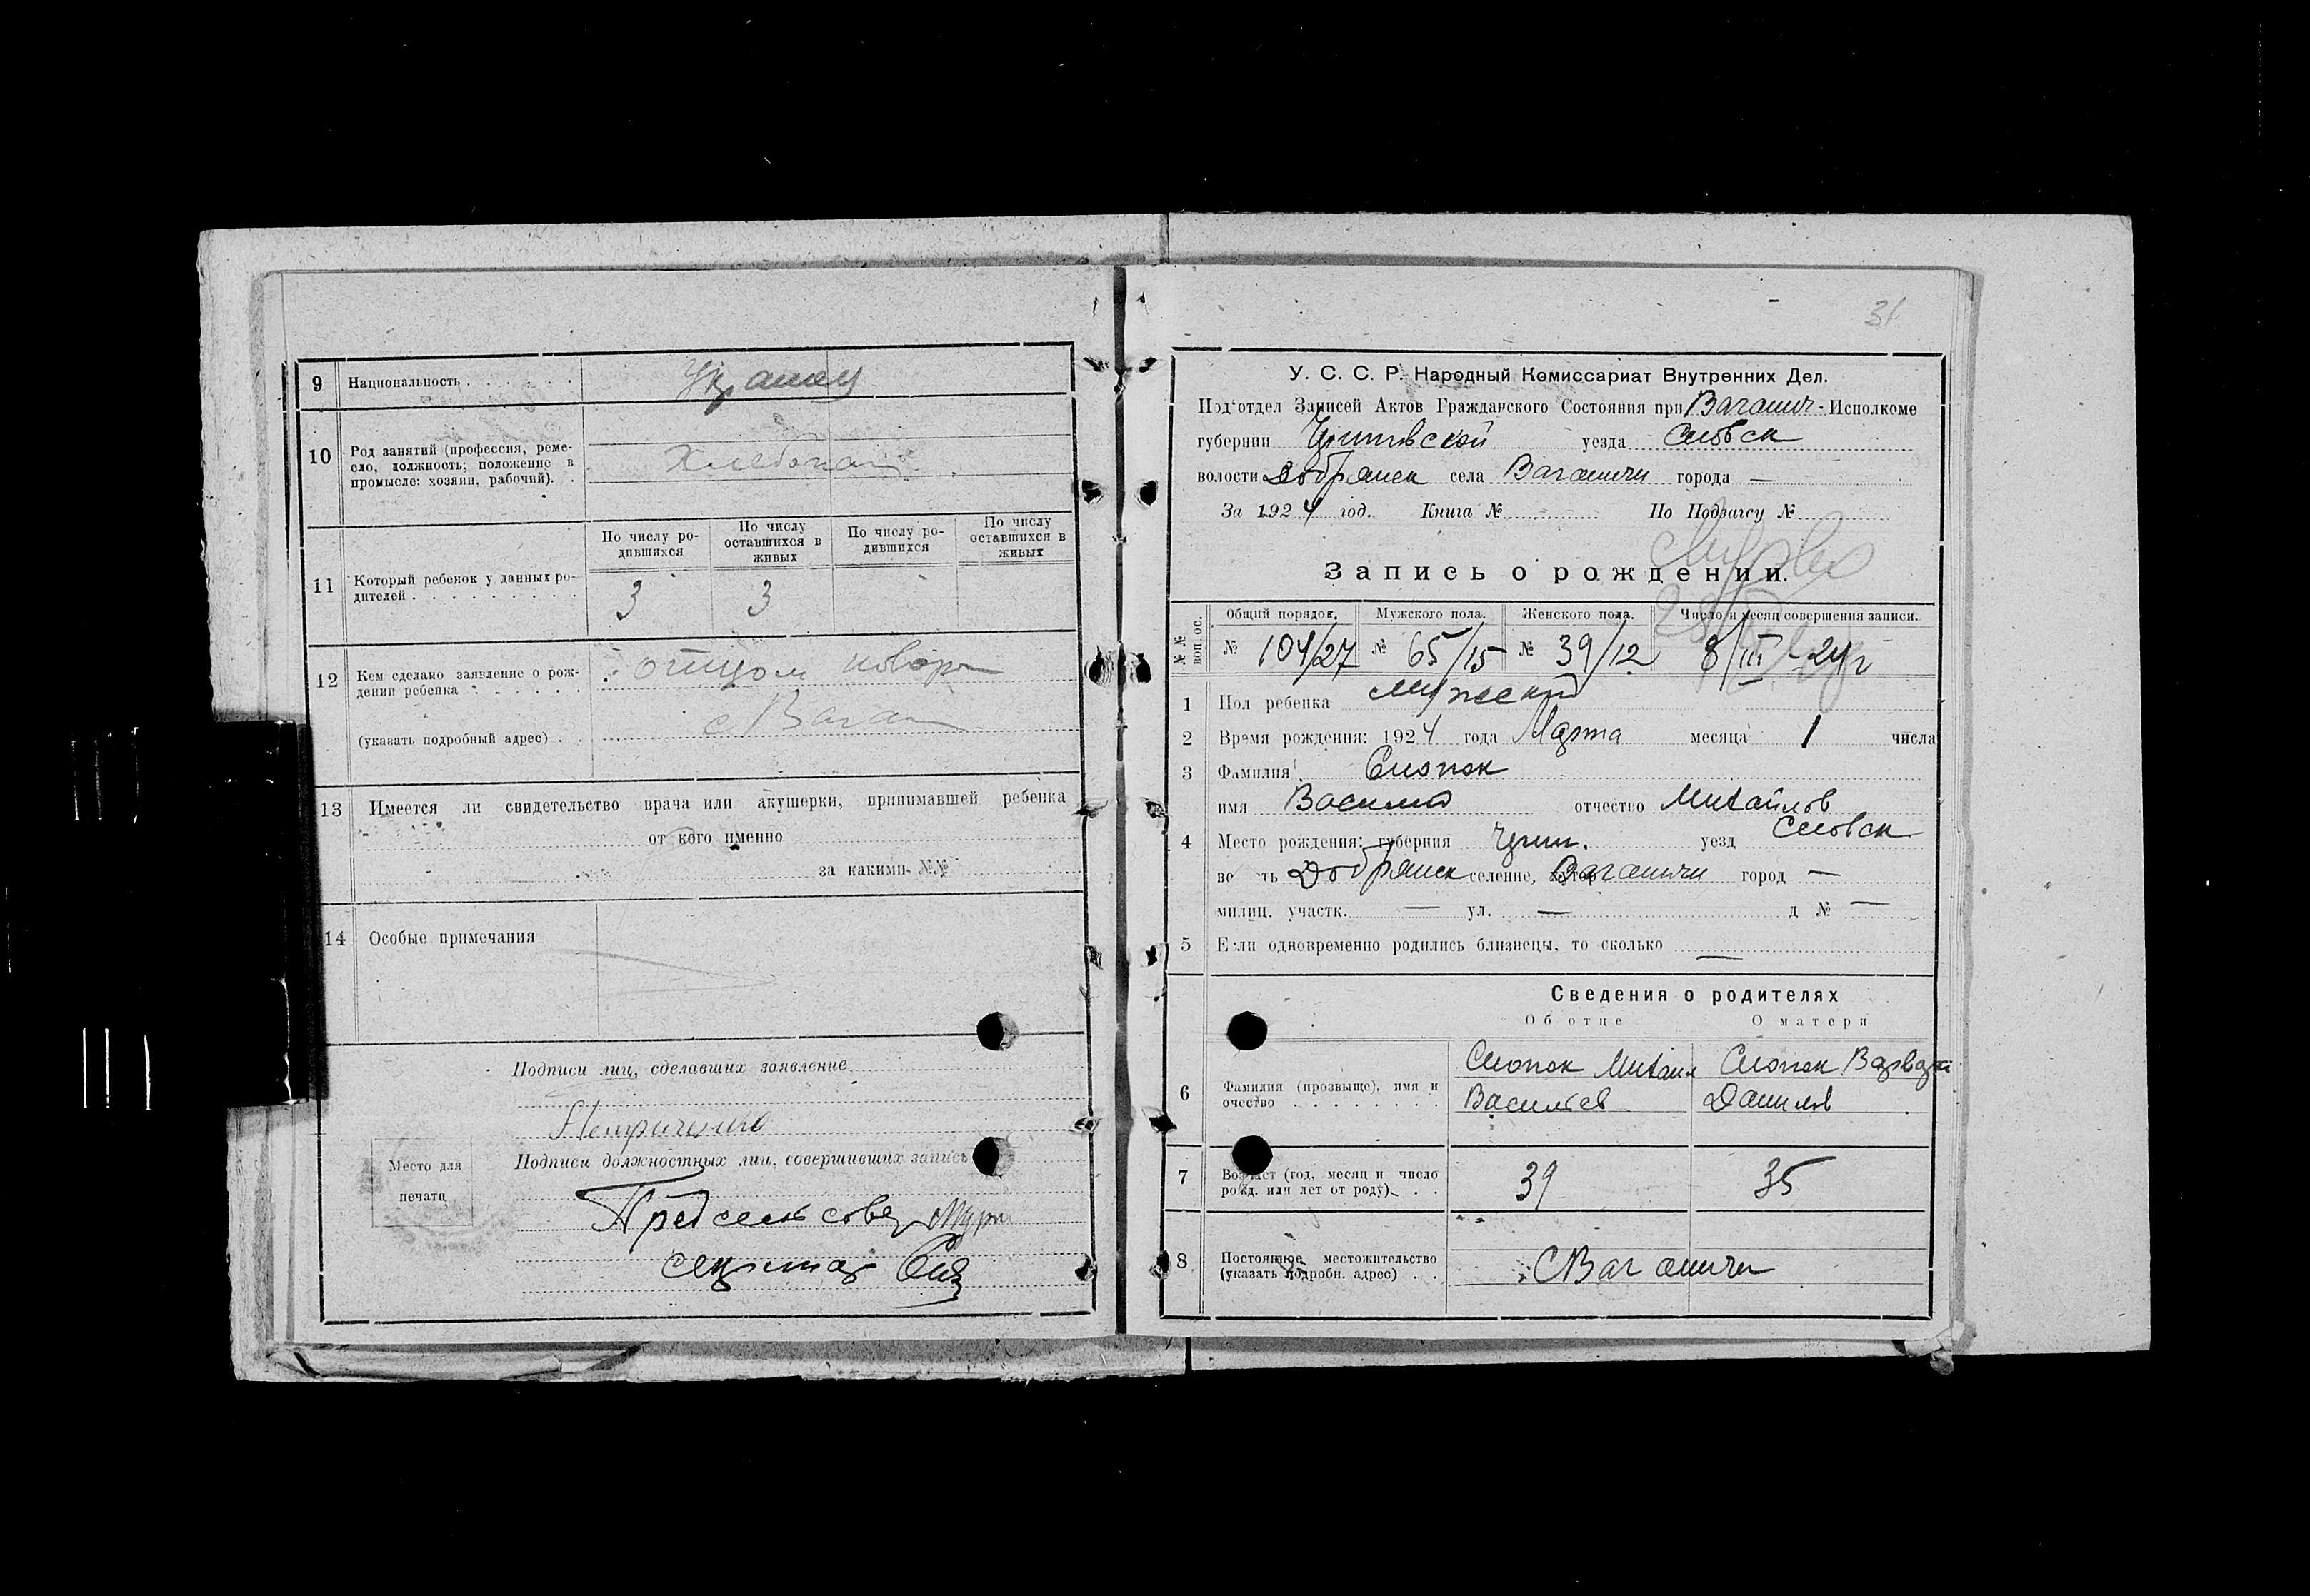 9 Национальность . . . . . .
10 Род занятий (профессия, реме-
сло, должность; положение в
промысле: хозяин, рабочий). .
Хлебопаш
По числу ро-
дившихся
По числу
оставшихся в
живых
По числу ро-
дившихся
По числу
оставшихся в
живых
11 Который ребенок у данных ро-
дителей . . . . . . . . . .
3 3
12 Кем сделано заявление о рож-
дении ребенка . . . . . .
отцом
(указать подробный адрес) . .
с Ваган
13 Имеется ли свидетельство врача или акушерки, принимавшей ребенка
от кого именно
за какими №№
14 Особые примечания
Подписи лиц, сделавших заявление
Подписи должностных лиц, совершивших запись
Место для
печати
Предсельсовет
31
У. С. С. Р. Народный Комиссариат Внутренних Дел.
Подотдел Записей Актов Гражданского Состояния при Ваганич-Исполкоме
губернии Черниговской уезда Сновск
волости Добрянск села Ваганичи города —
За 1924 год. Книга № По Подзагсу №
Запись о рождении.
№№ вопрос.
Общий порядов. Мужского пола. Женского пола. Число и месяц совершения записи.
№ 104/27 № 65/15 № 39/12 8/III-24 г
1 Пол ребенка мужской
2 Время рождения: 1924 года Марта месяца 1 числа
3 Фамилия
имя Василий отчество Михайлов
4 Место рождения: губерния Черниг. уезд Сновск
волость Добрянск селение, хутор Ваганичи город —
милиц. участк. — ул. — д № —
5 Если одновременно родились близнецы, то сколько —
Сведения о родителях
Об отце О матери
6 Фамилия (прозвище), имя и
очество . . . . . . . .
Михаил
Васильев
Данилов
7 Возраст (год, месяц и число
рожд. или лет от роду). . .
39 35
8 Постоянное местожительство
(указать подробн. адрес) . .
С Ваганичи